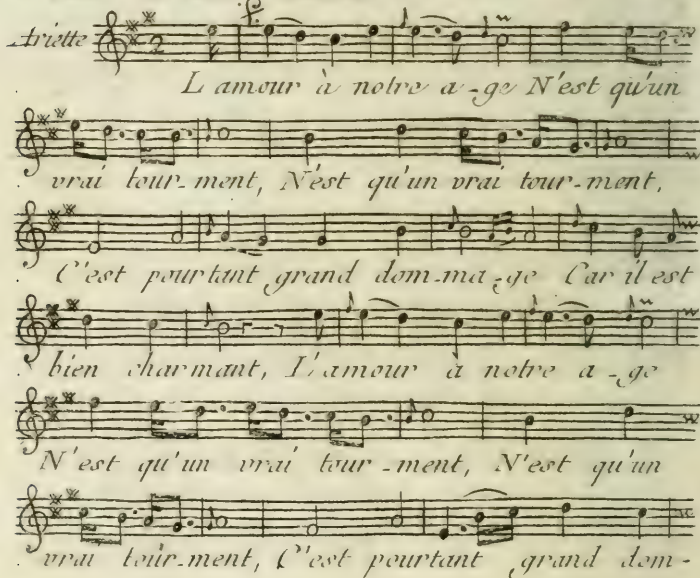 Ariette
L'amour à notre a-ge N'est qu'un
vrai tour-ment, N'est qu'un vrai tour-ment,
C'est pourtant grand dom-ma-ge Car il est
bien charmant, L'amour à notre a-ge
N'est qu'un vrai tour-ment, N'est qu'un
vrai tour-ment, C'est pourtant grand dom-